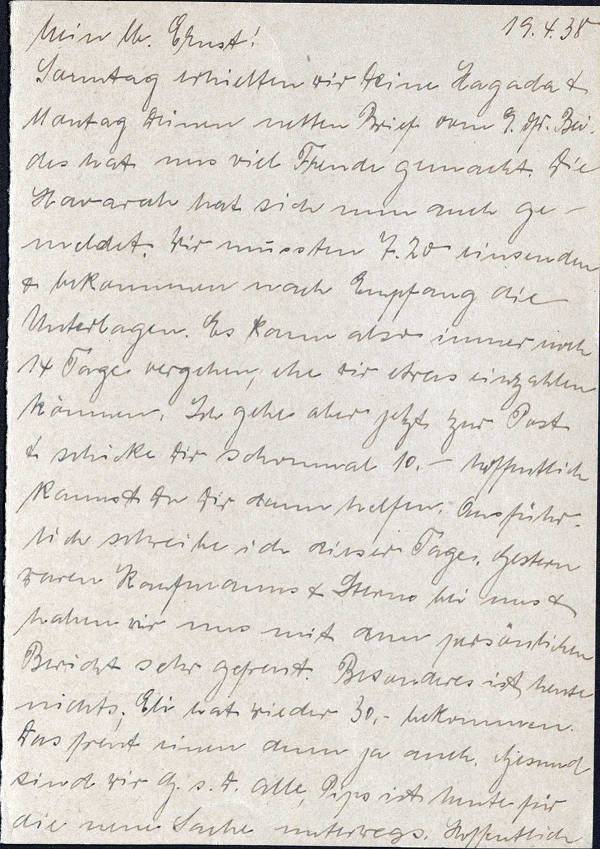 19.4.38
Mein lb. Ernst!
Sonntag erhielten wir Deine Hagada &
Montag Deinen netten Brief vom 9. ds. Bei-
des hat uns viel Freude gemacht. Die
Haavarah hat sich nun auch ge-
meldet. Wir mussten 7.20 einsenden
& bekommen nach Empfang die
Unterlagen. Es kann also immer noch
14 Tage vergehen, ehe wir etwas einzahlen
können. Ich gehe aber jetzt zur Post
& schicke Dir schonmal 10.- hoffentlich
kannst Du Dir dann helfen. Ausführ-
lich schreibe ich dieser Tage. Gestern
waren Kaufmanns & Sterns bei uns &
haben wir uns mit dem persönlichen
Bericht sehr gefreut. Besonderes ist heute
nichts, Eli hat wieder 30,- bekommen.
Das freut einen dann ja auch. Gesund
sind wir G. s. D. alle, Pips ist heute für
die neue Sache unterwegs. Hoffentlich